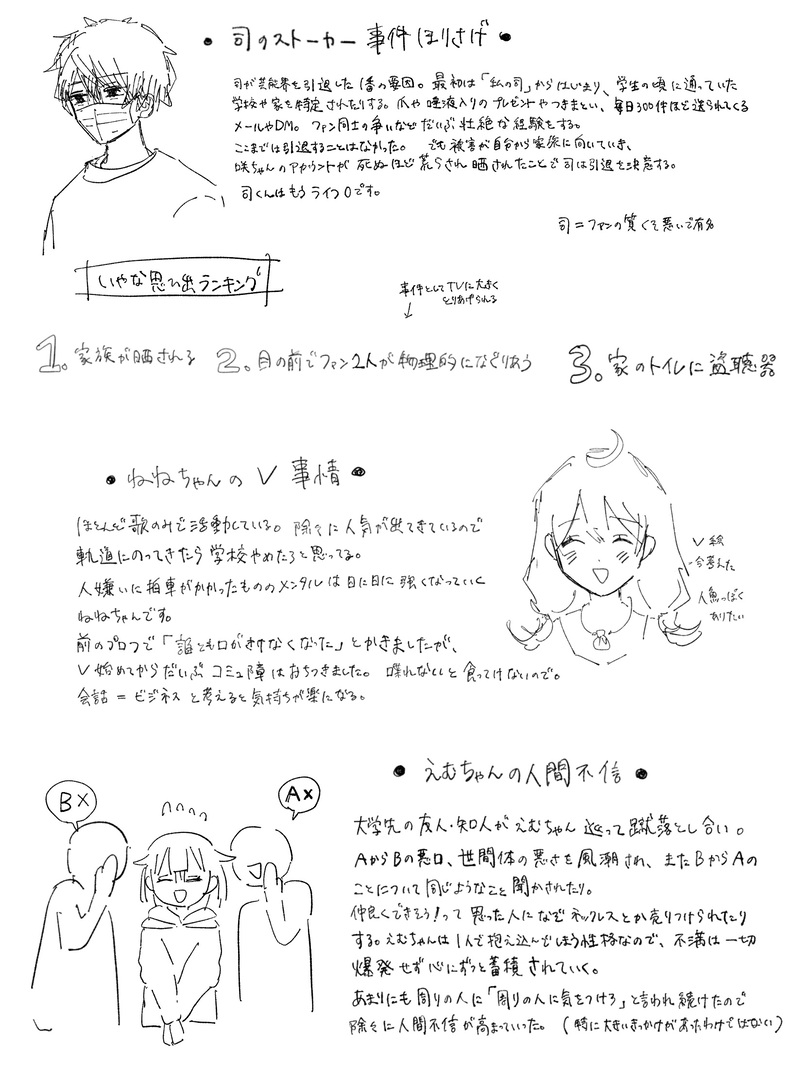 • 司のストーカー事件ほりさげ •
司が芸能界を引退した1番の要因。最初は「私の司」からはじまり、学生の頃に通っていた
学校や家を特定されたりする。爪や唾液入りのプレゼントやつきまとい、毎日300件ほど送られてくる
メールやDM。ファン同士の争いなどだいぶ壮絶な経験をする。
ここまでは引退することはなかった。 でも被害が自分から家族に向いていき、
咲ちゃんのアカウントが死ぬほど荒らされ晒されたことで司は引退を決意する。
司くんはもうライフ0です。
司=ファンの質くそ悪いで有名
いやな思い出ランキング
事件としてTVに大きく
とりあげられる
↓
1。家族が晒される 2。目の前でファン2人が物理的になぐりあう 3。家のトイレに盗聴器
• ねねちゃんのV事情 •
ほとんど歌のみで活動している。除々に人気が出てきているので
軌道にのってきたら学校やめたろと思ってる。
人嫌いに拍車がかかったもののメンタルは日に日に強くなっていく
ねねちゃんです。
前のプロフで「誰とも口がきけなくなった」とかきましたが、
V始めてからだいぶコミュ障はおちつきました。 喋れないと食ってけないので。
会話=ビジネスと考えると気持ちが楽になる。
V絵
今考えた
人魚っぽく
ありたい
• えむちゃんの人間不信 •
B×
A×
大学先の友人・知人がえむちゃん巡って蹴落とし合い。
AからBの悪口、世間体の悪さを風潮され、またBからAの
ことについて同じようなこと聞かされたり。
仲良くできそう!って思った人になぞネックレスとか売りつけられたり
する。えむちゃんは1人で抱え込んでしまう性格なので、不満は一切
爆発せず心にずっと蓄積されていく。
あまりにも周りの人に「周りの人に気をつけろ」と言われ続けたので
除々に人間不信が高まっていった。(特に大きいきっかけがあったわけではない)